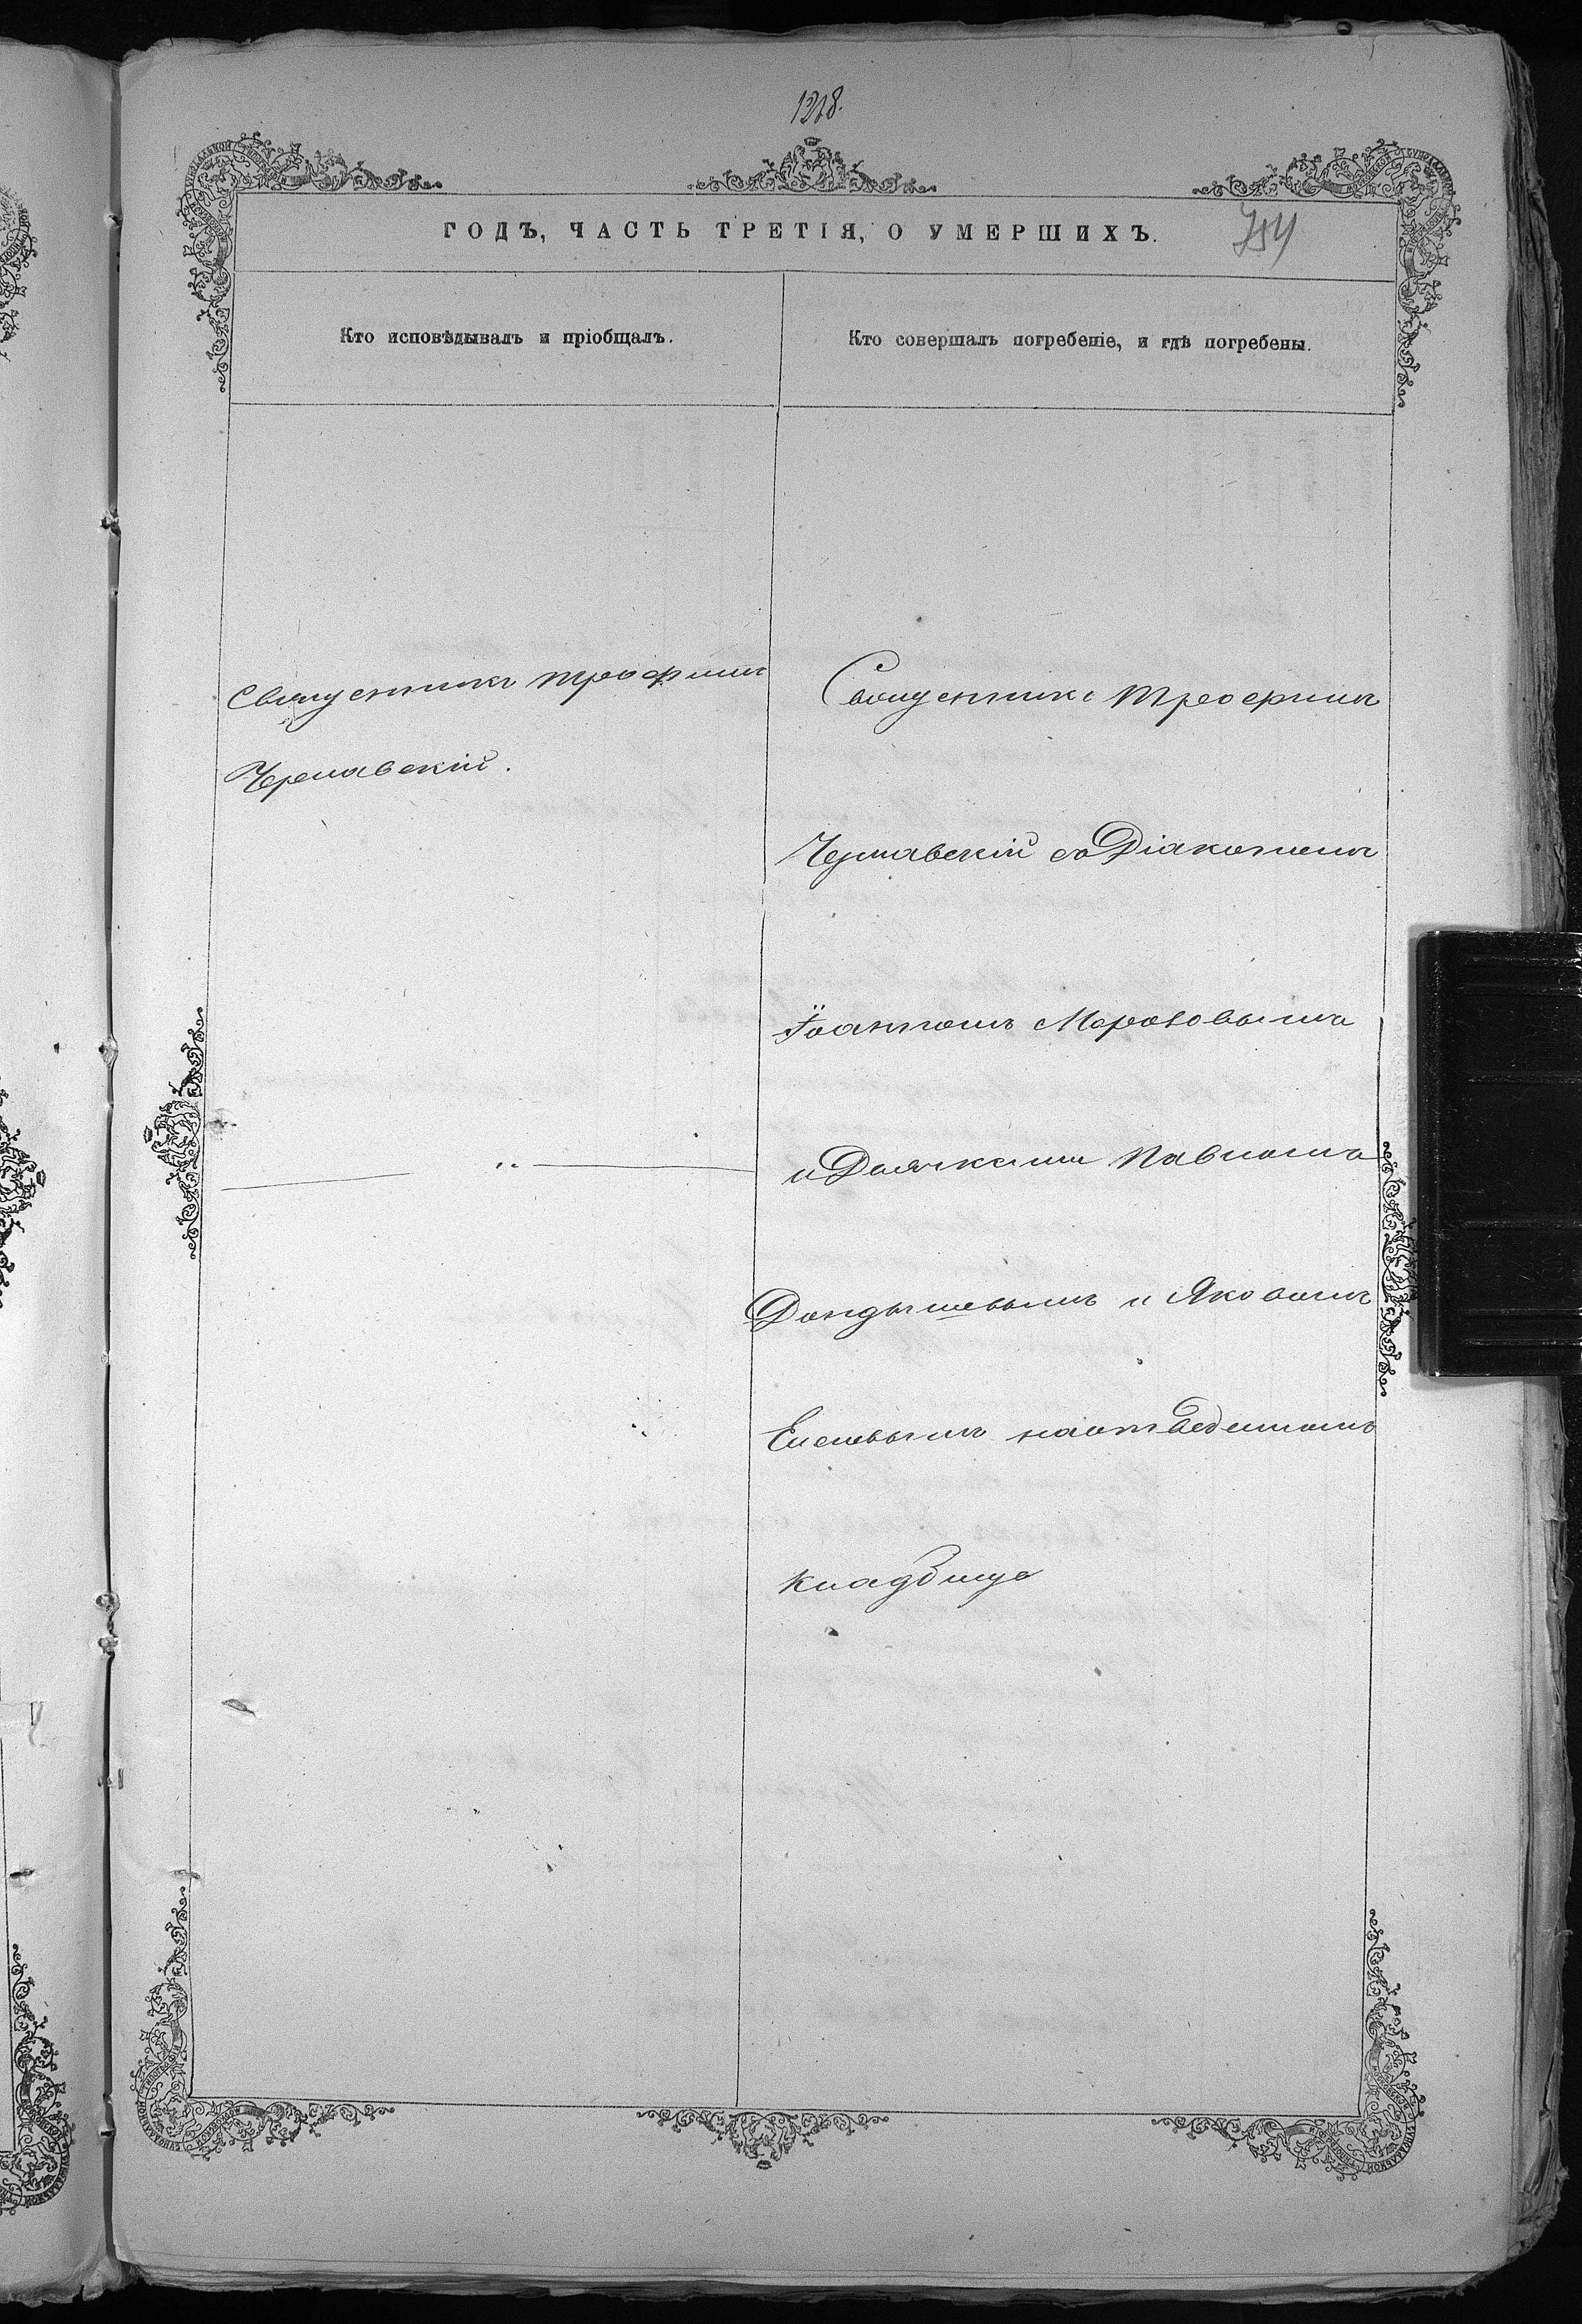 1218.
ГОДЪ, ЧАСТЬ ТРЕТІЯ, О УМЕРШИХЪ.
754
Кто исповѣдывалъ и пріобщалъ.
Кто совершалъ погребеніе, и гдѣ погребены.
Священникъ Трофимъ
Чернавскій.
Священникъ Трофимъ
Чернавскій съ Діакономъ
Іоанномъ Морозовымъ
и Дьячками Павломъ
Дондышевымъ и Яковомъ
на отведенномъ
кладбище